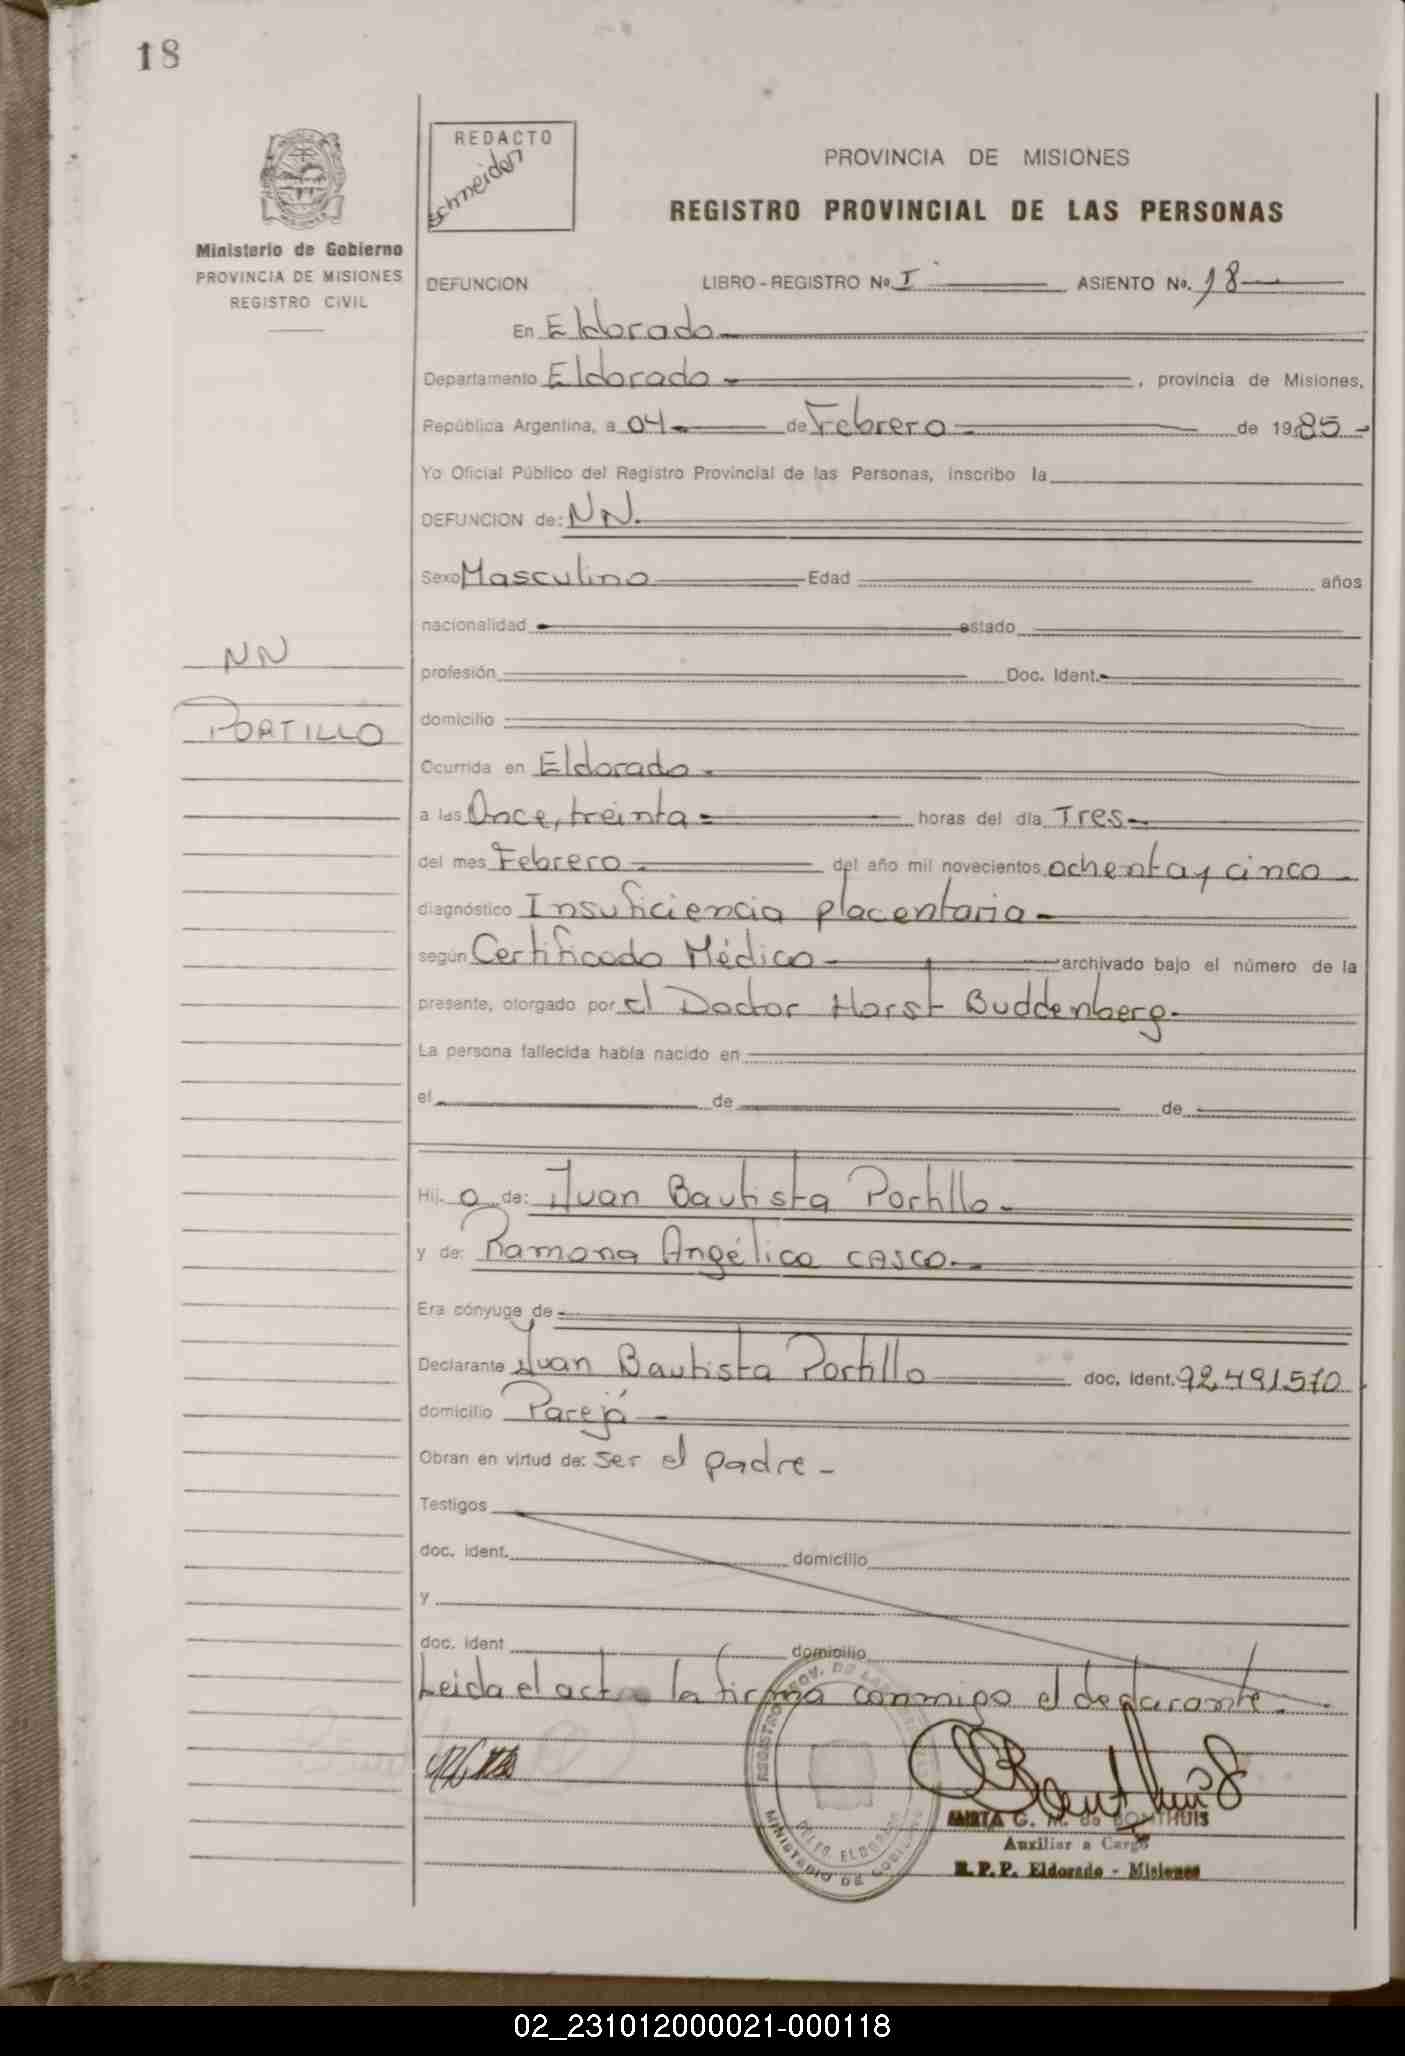 18
REDACTO
Schneider
Ministerio de Gobierno
PROVINCIA DE MISIONES
REGISTRO CIVIL
PROVINCIA DE MISIONES
REGISTRO PROVINCIAL DE LAS PERSONAS
DEFUNCION LIBRO - REGISTRO No. I ASIENTO No. 18
En Eldorado
Departamento Eldorado, provincia de Misiones,
República Argentina, a 04 de Febrero de 1985
Yo Oficial Público del Registro Provincial de las Personas, inscribo la
DEFUNCION de: NN.
Sexo Masculino Edad años
nacionalidad estado
NN
profesión Doc. Ident.
PORTILLO
domicilio
Ocurrida en Eldorado
a las Once, treinta horas del día Tres
del mes Febrero del año mil novecientos ochenta y cinco
diagnóstico Insuficiencia placentaria
según Certificado Médico archivado bajo el número de la
presente, otorgado por el Doctor Horst Buddenberg.
La persona fallecida había nacido en
el de de
Hij o de: Juan Bautista Portillo
y de: Ramona Angélica CASCO.
Era cónyuge de
Declarante Juan Bautista Portillo doc. ident. 92.491.570
domicilio Parejá
Obran en virtud de: ser el padre
Testigos
doc. ident. domicilio
y
doc. ident domicilio
Leida el acta la firma conmigo el declarante.
REGISTRO PROV. DE LAS
MINISTERIO DE GOBIERNO
ELDORADO
G. M. de BONTHUIS
Auxiliar a Cargo
R. P. P. Eldorado - Misiones
02_231012000021-000118